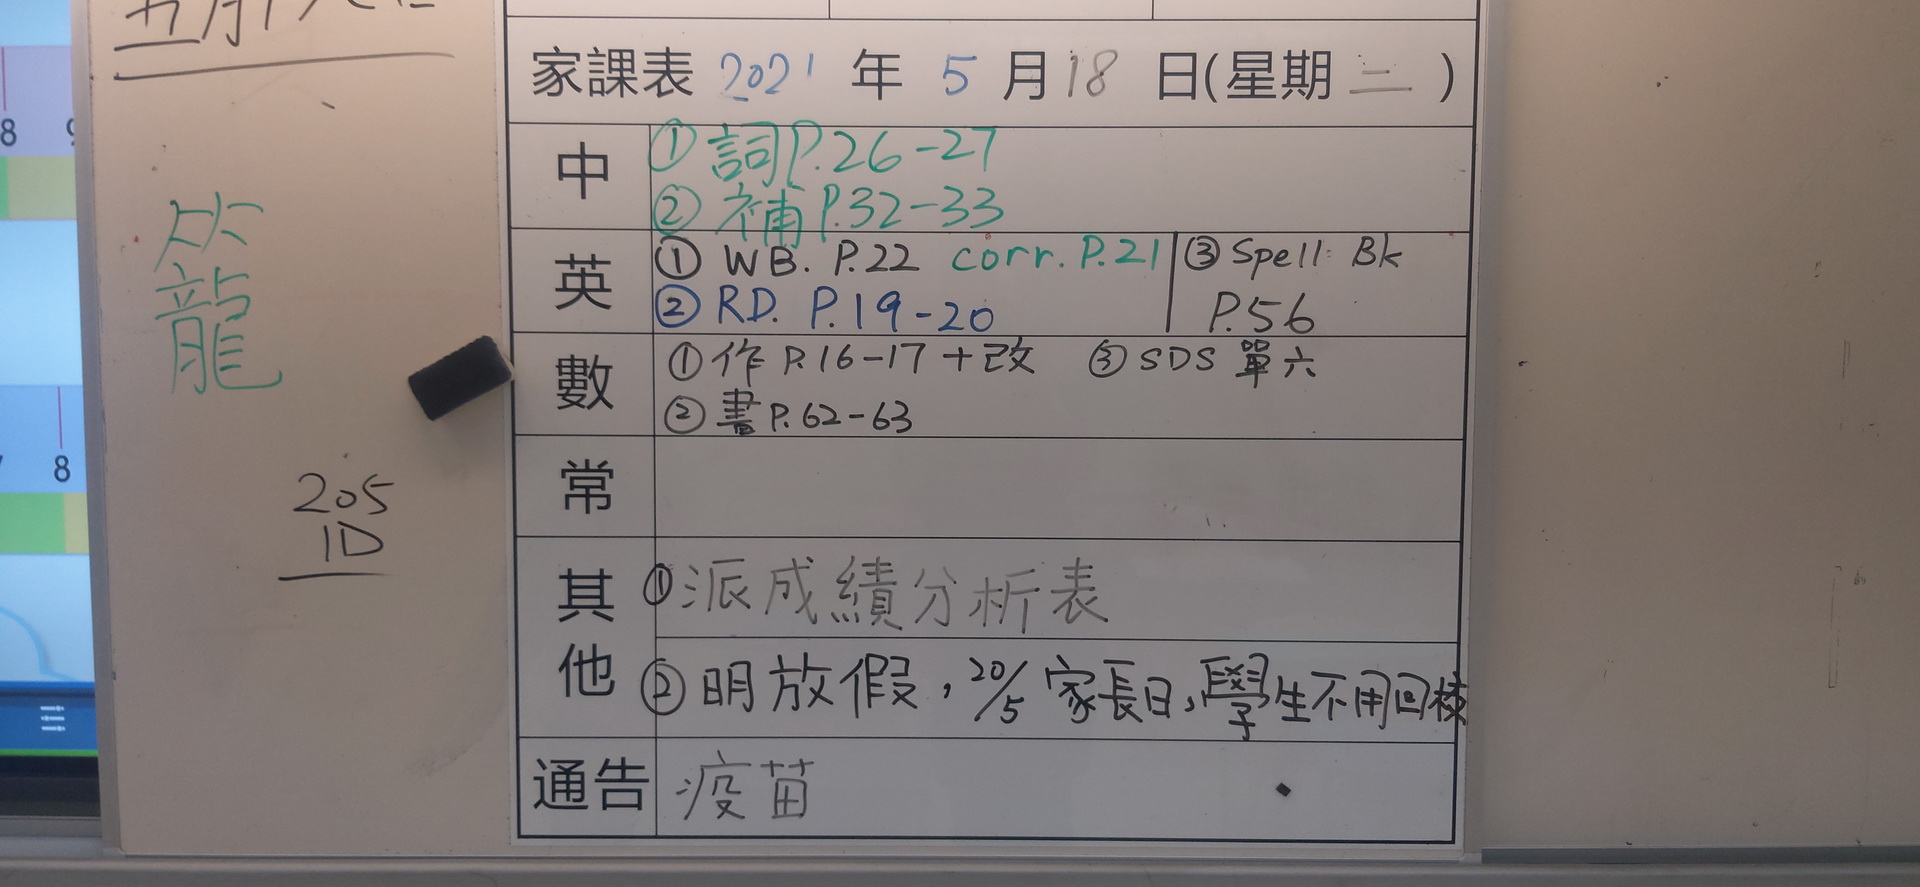 家課表 2021 年 5 月 18 日(星期 二 )
中
① 詞 P.26-27
② 補 P.32-33
英
① WB. P.22 corr. P.21
② RD. P.19-20
③ Spell: Bk
P.56
數
① 作 P.16-17 +改 ③ SDS 單六
② 書 P.62-63
常
其他
① 派成績分析表
② 明放假，20/5 家長日，學生不用回校
通告
疫苗
籠
205
1D
8
8